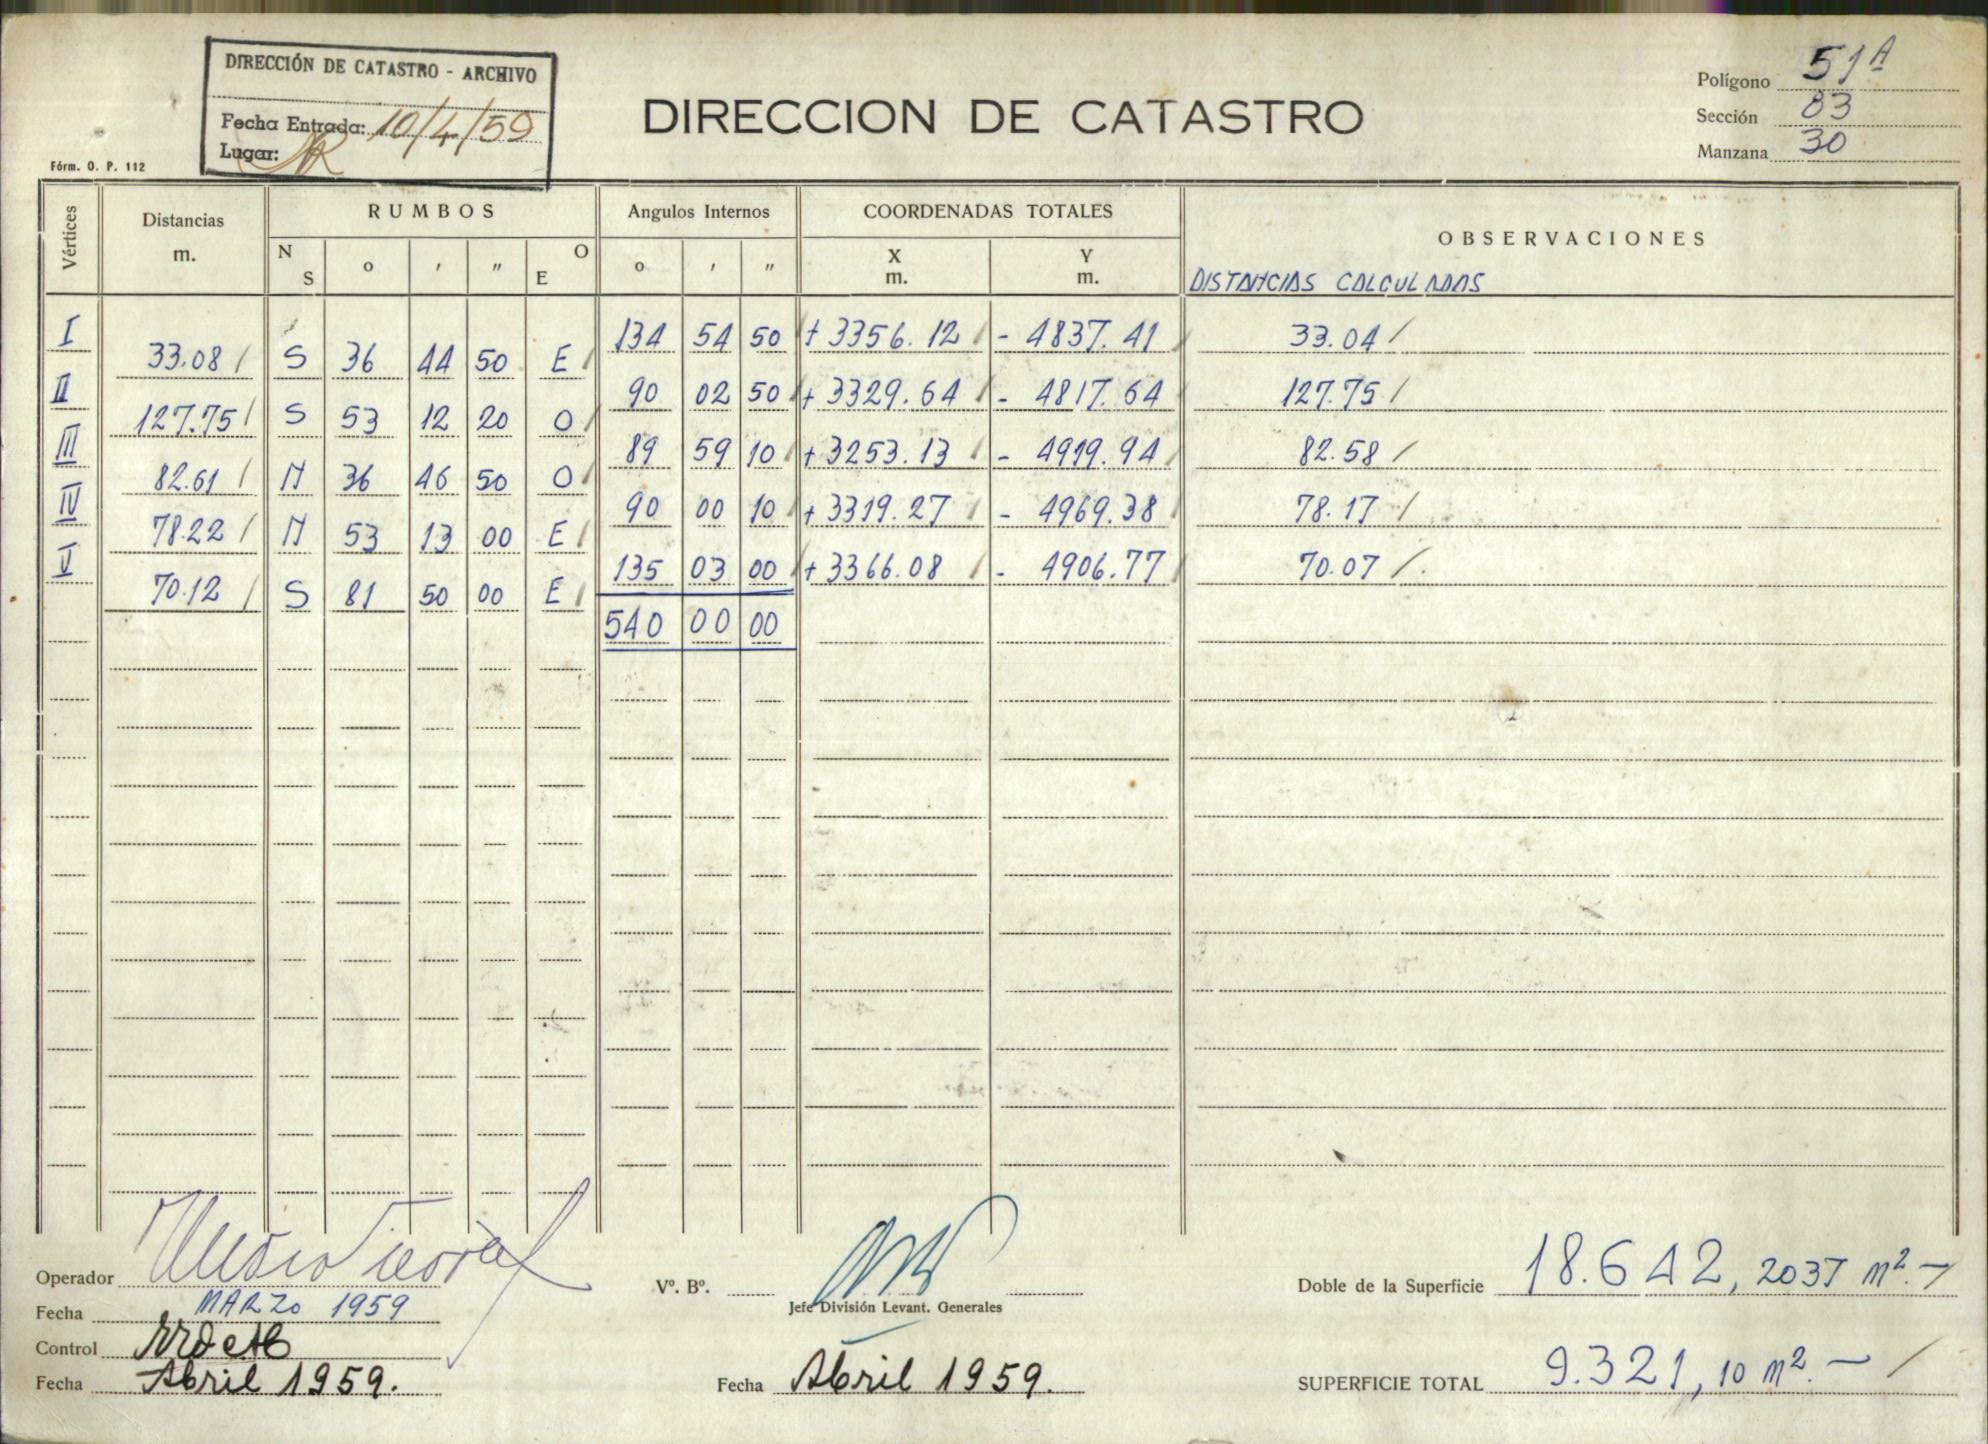 DIRECCIÓN DE CATASTRO - ARCHIVO
Fecha Entrada: 10/4/59
Lugar:
Fórm. O. P. 112
DIRECCION DE CATASTRO
Polígono 51A
Sección 83
Manzana 30
Vértices Distancias m. RUMBOS N S o ' " O E Angulos Internos o ' " COORDENADAS TOTALES X m. Y m. OBSERVACIONES
DISTANCIAS CALCULADAS
I 134 54 50 + 3356.12 - 4837.41 33.04
33.08 S 36 44 50 E
II 90 02 50 + 3329.64 - 4817.64 127.75
127.75 S 53 12 20 O
III 89 59 10 + 3253.13 - 4919.94 82.58
82.61 N 36 46 50 O
IV 90 00 10 + 3319.27 - 4969.38 78.17
78.22 N 53 13 00 E
V 135 03 00 + 3366.08 - 4906.77 70.07
70.12 S 81 50 00 E
540 00 00
Operador
Fecha MARZO 1959
Control
Fecha Abril 1959.
Vº. Bº.
Jefe División Levant. Generales
Fecha Abril 1959.
Doble de la Superficie 18.642, 2037 m².-
SUPERFICIE TOTAL 9.321, 10 m².-